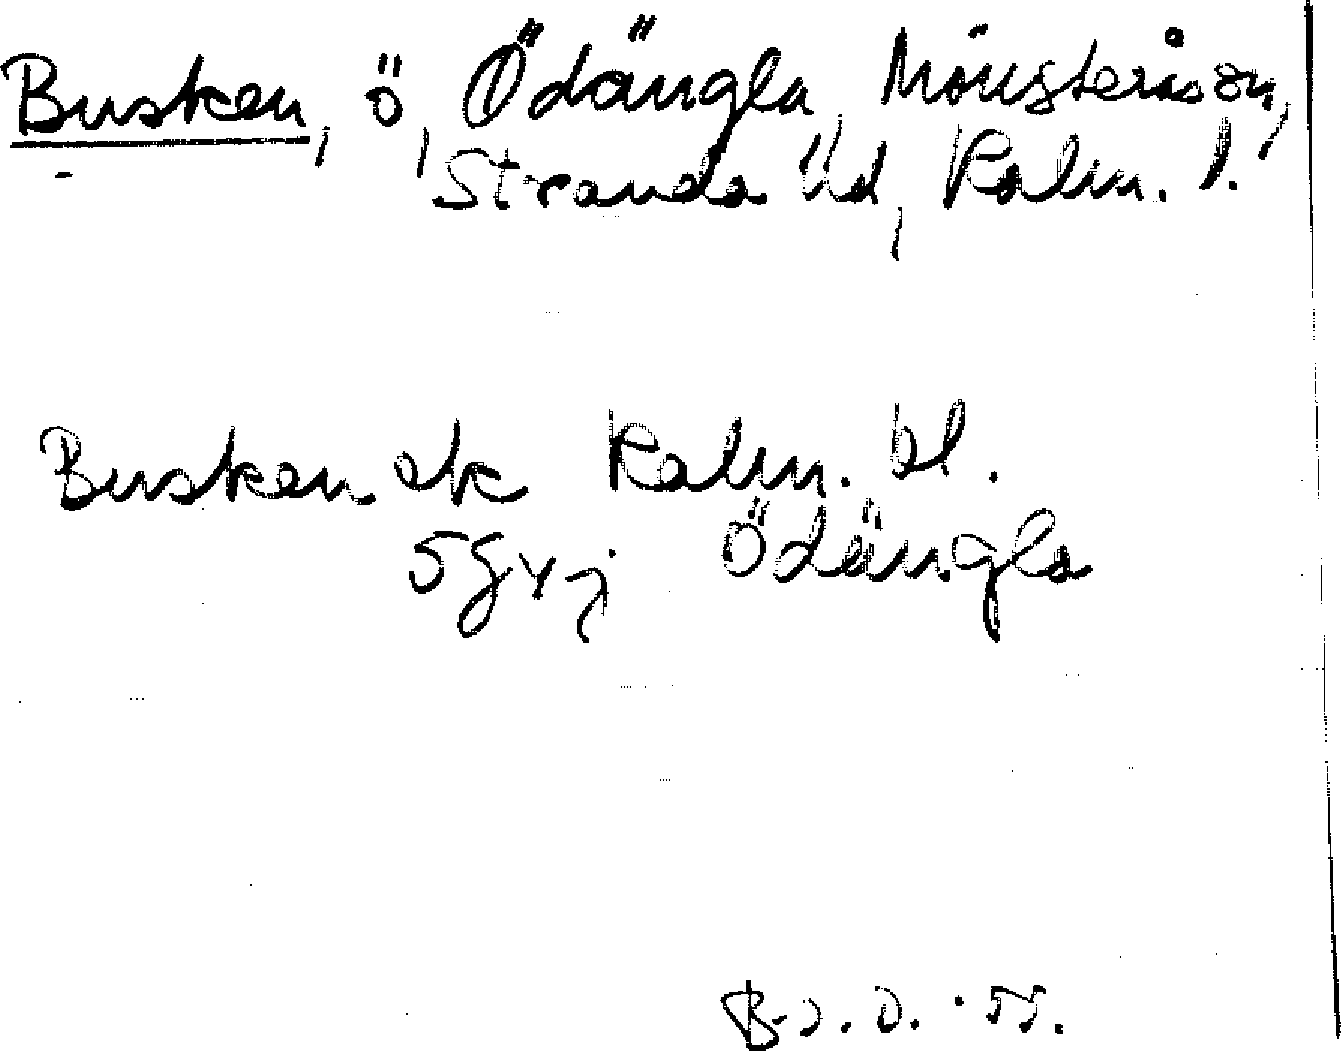 Busken, ö, Ödängla, Mönsterås sn,
Stranda hd, Kalm. l.
Busken ek Kalm. bl.
5G4j Ödängla
B-J.O. 55.